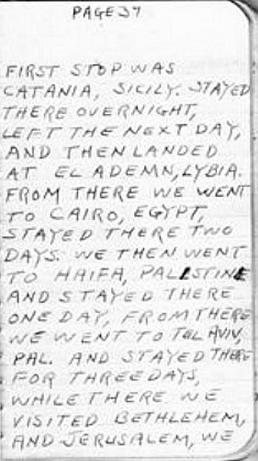 PAGE 37
FIRST STOP WAS
CATANIA, SICILY. STAYED
THERE OVERNIGHT,
LEFT THE NEXT DAY,
AND THEN LANDED
AT EL ADEMN, LYBIA.
FROM THERE WE WENT
TO CAIRO, EGYPT,
STAYED THERE TWO
DAYS. WE THEN WENT
TO HAIFA, PALISTINE
AND STAYED THERE
ONE DAY, FROM THERE
WE WENT TO TEL AVIV,
PAL. AND STAYED THERE
FOR THREE DAYS,
WHILE THERE WE
VISITED BETHLEHEM,
AND JERUSALEM, WE